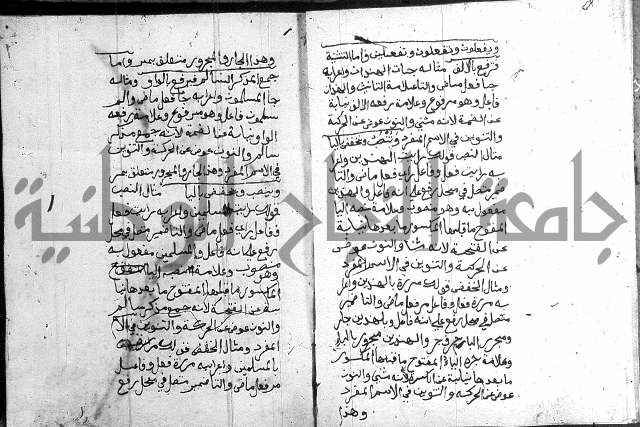 ويفعلون وتفعلون وتفعلين واما التثنية
فترفع بالالف مثاله جات الهندان واعرابه
جا فعل ماض والتا علامة التانيث والهندان
فاعل وهو مرفوع وعلامة رفعه الالف نيابة
عن الضمة لانه مثنى والنون عوض عن الحركة
والتنوين في الاسم المفرد وتنصب وتخفض باليا
مثال النصب قولك رايت الهندين واعرا
به رايت فعل وفاعل راى فعل ماض والتا
ضمير متصل في محل رفع على انه فاعل والهندين
مفعول به وهو منصوب وعلامة نصبه اليا
المفتوح ما قبلها المكسور ما بعدها نيابة
عن الفتحة لانه مثنا والنون عوض
عن الحركة والتنوين في الاسم المفرد
ومثال الخفض قولك مررت بالهندين واعرا
به مررت فعل وفاعل مر فعل ماض والتا ضمير
متصل في محل رفع على انه فاعل وبالهندين جار
ومجرور البا حرف جر والهندين مجرور بالبا
وعلامة جره اليا المفتوح ما قبلها المكسور
ما بعدها نيابة عن الكسرة لانه مثنى والنون
عوض عن الحركة والتنوين في الاسم المفرد
وهذا
وهذا الجار والمجرور متعلق بمر واما
جمع المذكر السالم فيرفع بالواو ومثاله
جا المسلمون واعرابه جا فعل ماض والمـ
سلمون فاعل وهو مرفوع وعلامة رفعه
الواو نيابة عن الضمة لانه جمع مذكر
سالم والنون عوض عن الحركة والتنوين
في الاسم المفرد وهذا الجار والمجرور متعلق بمر
وينصب ويخفض باليا مثال النصب
قولك رايت المسلمين واعرابه رايت فعل
وفاعل راى فعل ماض والتا ضمير متصل في محل
رفع على انه فاعل والمسلمين مفعول به
وهو منصوب وعلامة نصبه اليا المفتوح
المكسور ما قبلها المفتوح ما بعدها نيا
بة عن الفتحة لانه جمع مذكر سالم
والنون عوض عن الحركة والتنوين في الاسم
المفرد ومثال الخفض قولك مررت
بالمسلمين واعرابه مررت فعل وفاعل
مر فعل ماض والتا ضمير متصل في محل رفع
جامعة النجاح الوطنية